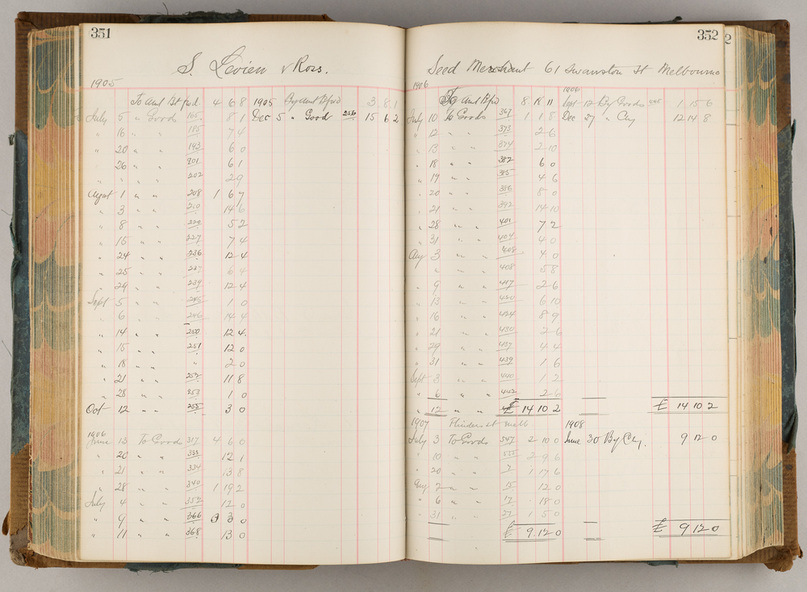 351
S. Levien & Ross.
1905
To Amt Bt fwd 4 6 8 1905 By Amt Bfwd 3 8 1
July 5 " Goods 8 1 Dec 5 " Good 256 15 6 2
" 16 " " 7 4
" 20 " " 193 6 0
" 26 " " 201 6 1
" " " 202 2 9
August 1 " " 208 1 6 7
" 3 " " 210 14 6
" 8 " " 5 2
" 15 " " 227 7 4
" 24 " " 236 12 4
" 25 " " 237
" 29 " " 239 12 4
Sept 5 " " 1 0
" 6 " " 14 4
" 14 " " 250 12 4
" 15 " " 251 12 0
" 18 " " " 2 0
" 21 " " 11 8
" 28 " " 1 0
Oct 12 " " 3 0
1906
June 13 To Good 317 4 6 0
" 20 " " 12 1
" 21 " " 334 13 8
" 28 " " 340 1 19 2
July 4 " " 352 12 0
" 9 " " 366 3 0
" 11 " " 368 13 0
352
Seed Merchant 61 Swanston St Melbourne
1906
To Amt Bfwd 8 18 11 Sept 12 By Goods 1 15 6
July 10 To Goods 1 8 Dec 27 " Cy 12 14 8
" 12 " " 373 2 6
" 13 " " 374 2 10
" 18 " " 382 6 0
" 19 " " 385 4 6
" 20 " " 386 8 0
" 21 " " 392 14 10
" 28 " " 401 7 2
" 31 " " 404 4 0
Aug 3 " " 408 4 0
" " " 408 5 8
" 9 " " 417 2 6
" 13 " " 420 6 10
" 16 " " 424 8 9
" 21 " " 430 2 6
" 29 " " 437 4 4
" 31 " " 439 1 6
Sept 3 " " 440 1 2
" 6 " " 442 2 6
" 12 " " £ 14 10 2 £ 14 10 2
1907 Flinders St Melb 1908
July 3 To Goods 547 2 10 0 June 30 By Cy. 9 12 0
" 10 " " 2 9 6
" 20 " " 1 17 6
Aug 2 " " 12 0
" 6 " " 17 18 0
" 31 " " 1 5 0
£ 9 12 0 £ 9 12 0